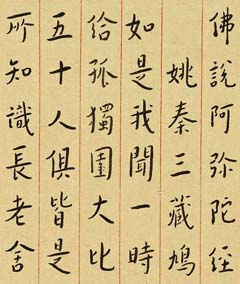 佛說阿弥陀經
姚秦三藏鳩
如是我聞一時
給孤獨園大比
五十人俱皆是
所知識長老舍